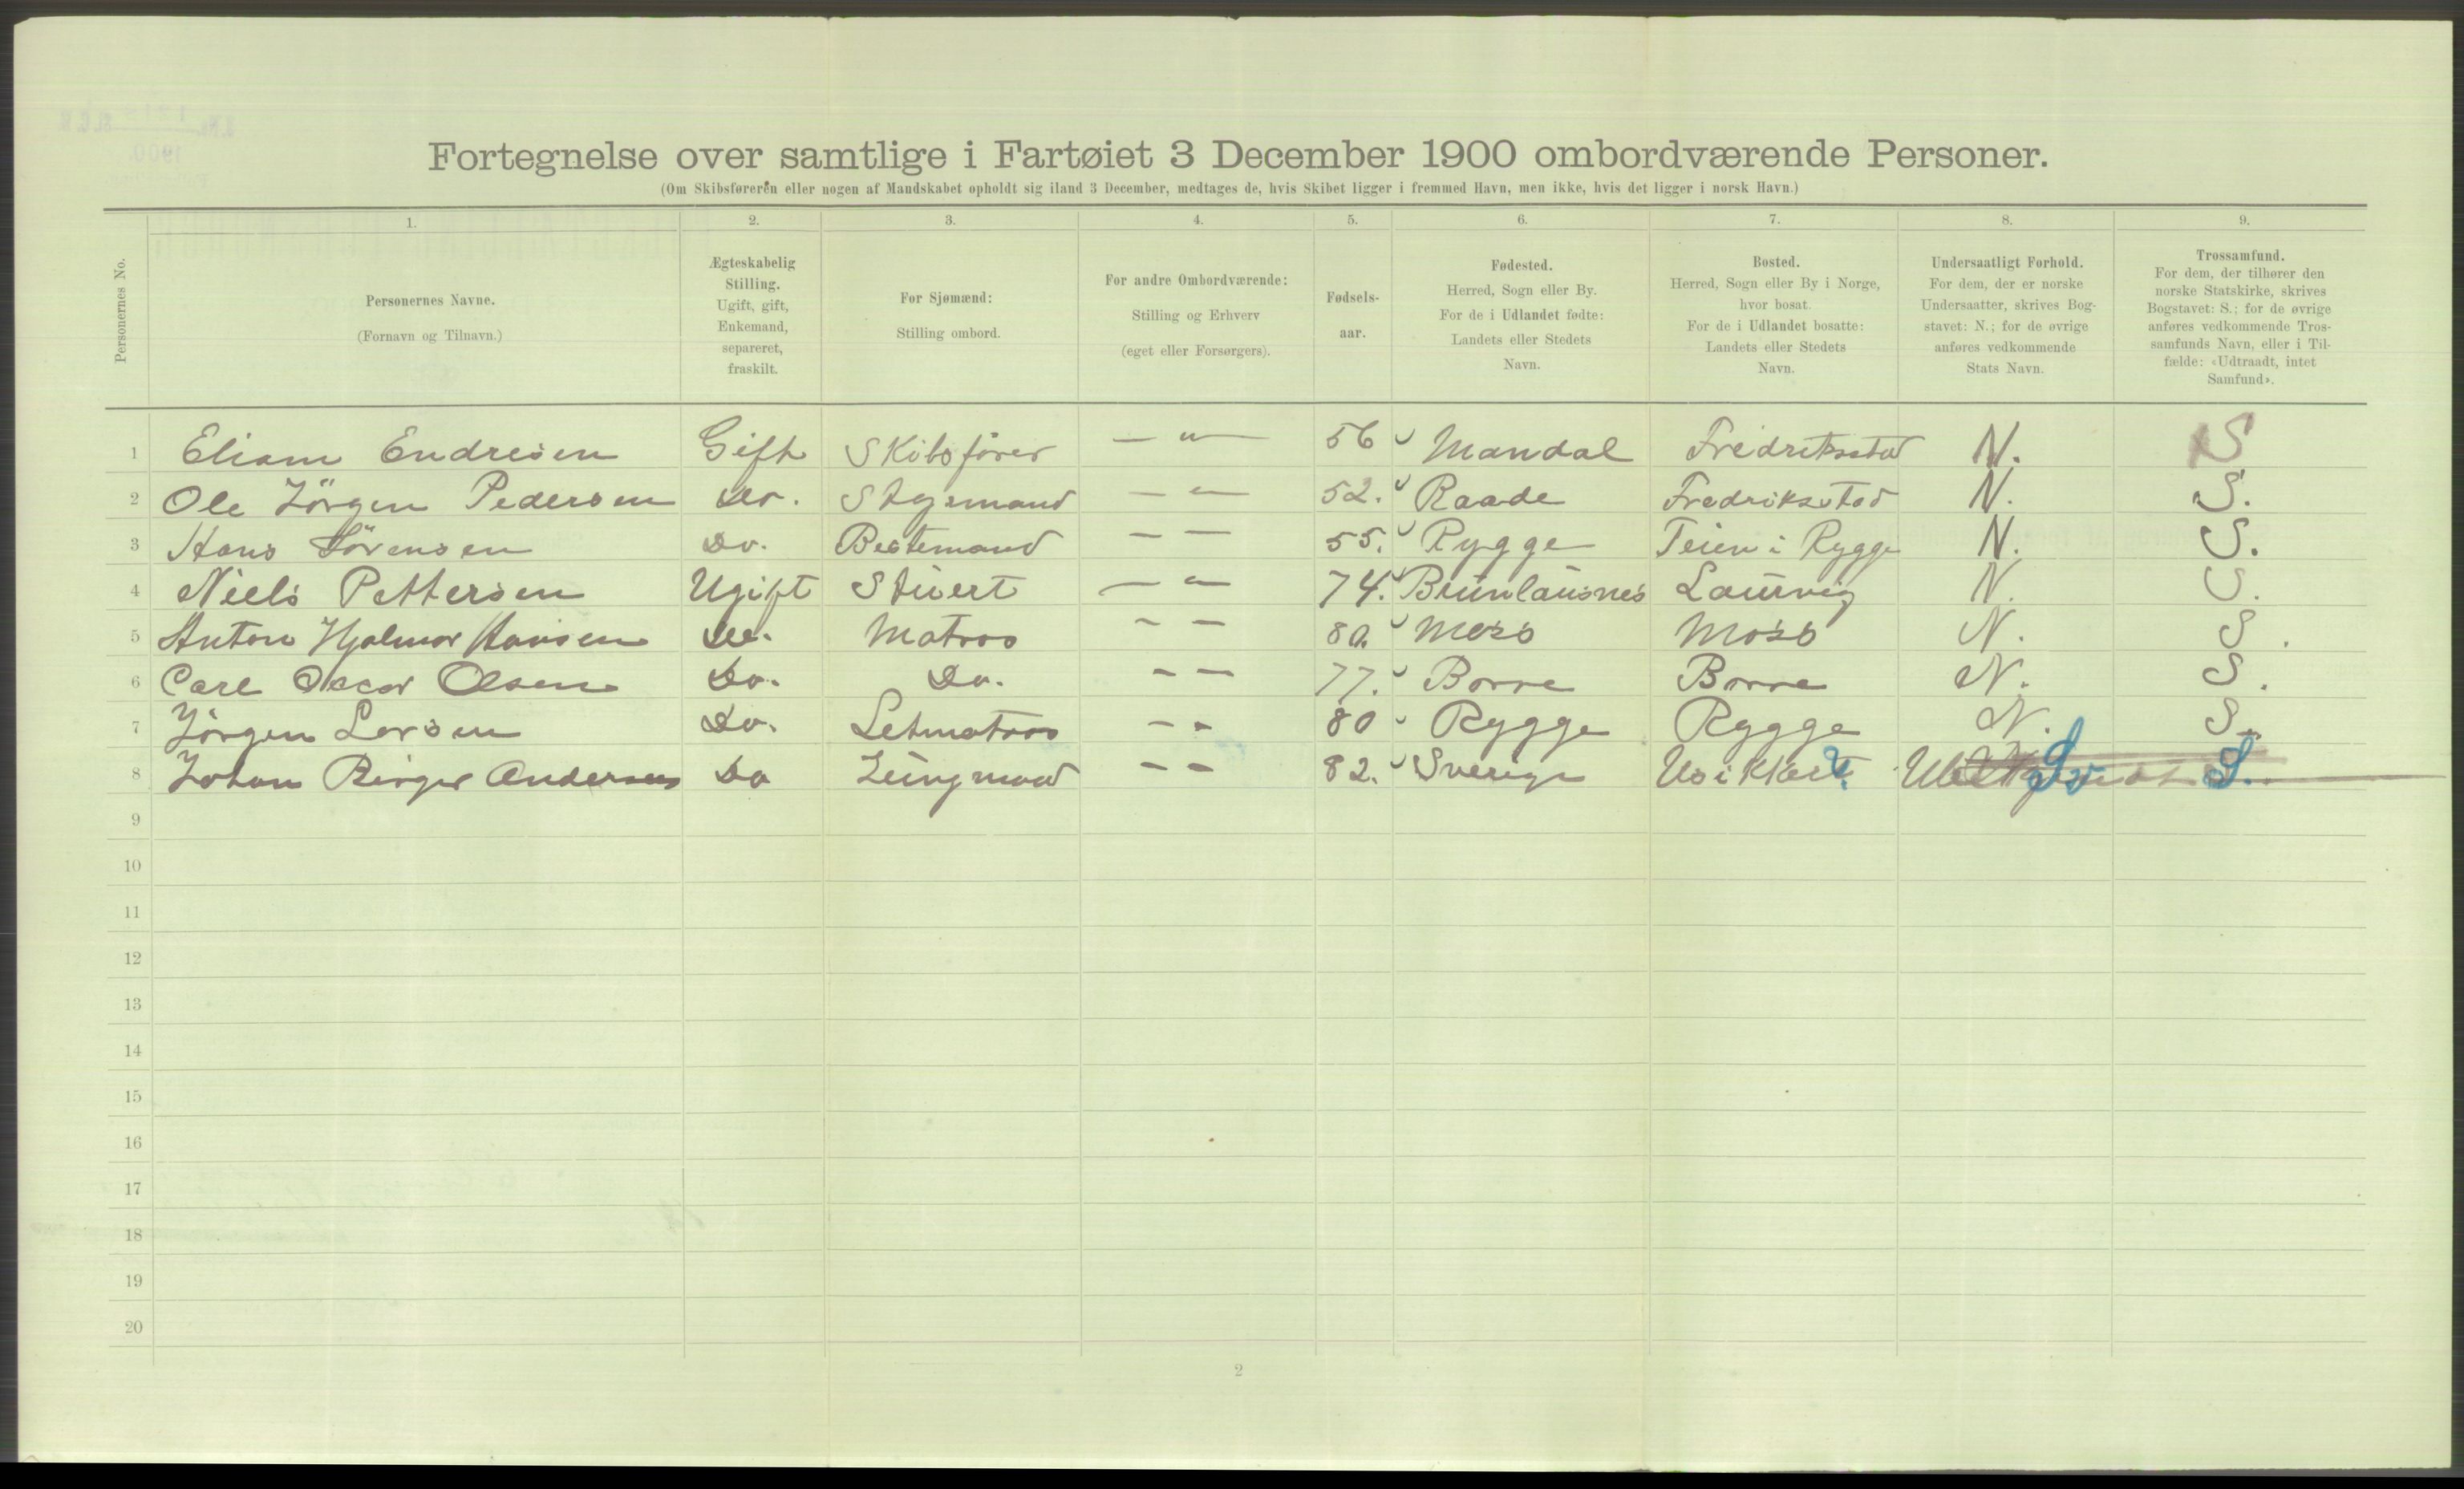 Fortegnelse over samtlige i Fartøiet 3 December 1900 ombordværende Personer.
(Om Skibsføreren eller nogen af Mandskabet opholdt sig iland 3 December, medtages de, hvis Skibet ligger i fremmed Havn, men ikke, hvis det ligger i norsk Havn.)
1. 2. 3. 4. 5. 6. 7. 8. 9.
Personernes No.
Personernes Navne.
(Fornavn og Tilnavn.)
Ægteskabelig
Stilling.
Ugift, gift,
Enkemand,
separeret,
fraskilt.
For Sjømænd:
Stilling ombord.
For andre Ombordværende:
Stilling og Erhverv
(eget eller Forsørgers).
Fødsels-
aar.
Fødested.
Herred, Sogn eller By.
For de i Udlandet fødte:
Landets eller Stedets
Navn.
Bosted.
Herred, Sogn eller By i Norge,
hvor bosat.
For de i Udlandet bosatte:
Landets eller Stedets
Navn.
Undersaatligt Forhold.
For dem, der er norske
Undersaatter, skrives Bog-
stavet: N.; for de øvrige
anføres vedkommende
Stats Navn.
Trossamfund.
For dem, der tilhører den
norske Statskirke, skrives
Bogstavet: S.; for de øvrige
anføres vedkommende Tros-
samfunds Navn, eller i Til-
fælde: «Udtraadt, intet
Samfund».
1 Eliam Endresen Gift Skibsfører — " — 56 Mandal Fredriksstad N. S
2 Ole Jörgen Pedersen Do. Styrmand — " — 52. Raade Fredriksstad N. S.
3 Hans Sörensen Do. Bestemand — — 55. Rygge Teien i Rygge N. S.
4 Niels Pettersen Ugift Stuert — " — 74. Brunlausnes Laurvig N. S.
5 Anton Hjalmar Hansen Do. Matros — — 80. Moss Moss N. S.
6 Carl Oscar Olsen Do. Do. — — 77. Borre Borre N. S.
7 Jörgen Larsen Do. Letmatros — — 80 Rygge Rygge N. S.
8 Johan Birger Andersen Do Jungmand — — 82. Sverige Usikkert S.
9
10
11
12
13
14
15
16
17
18
19
20
2